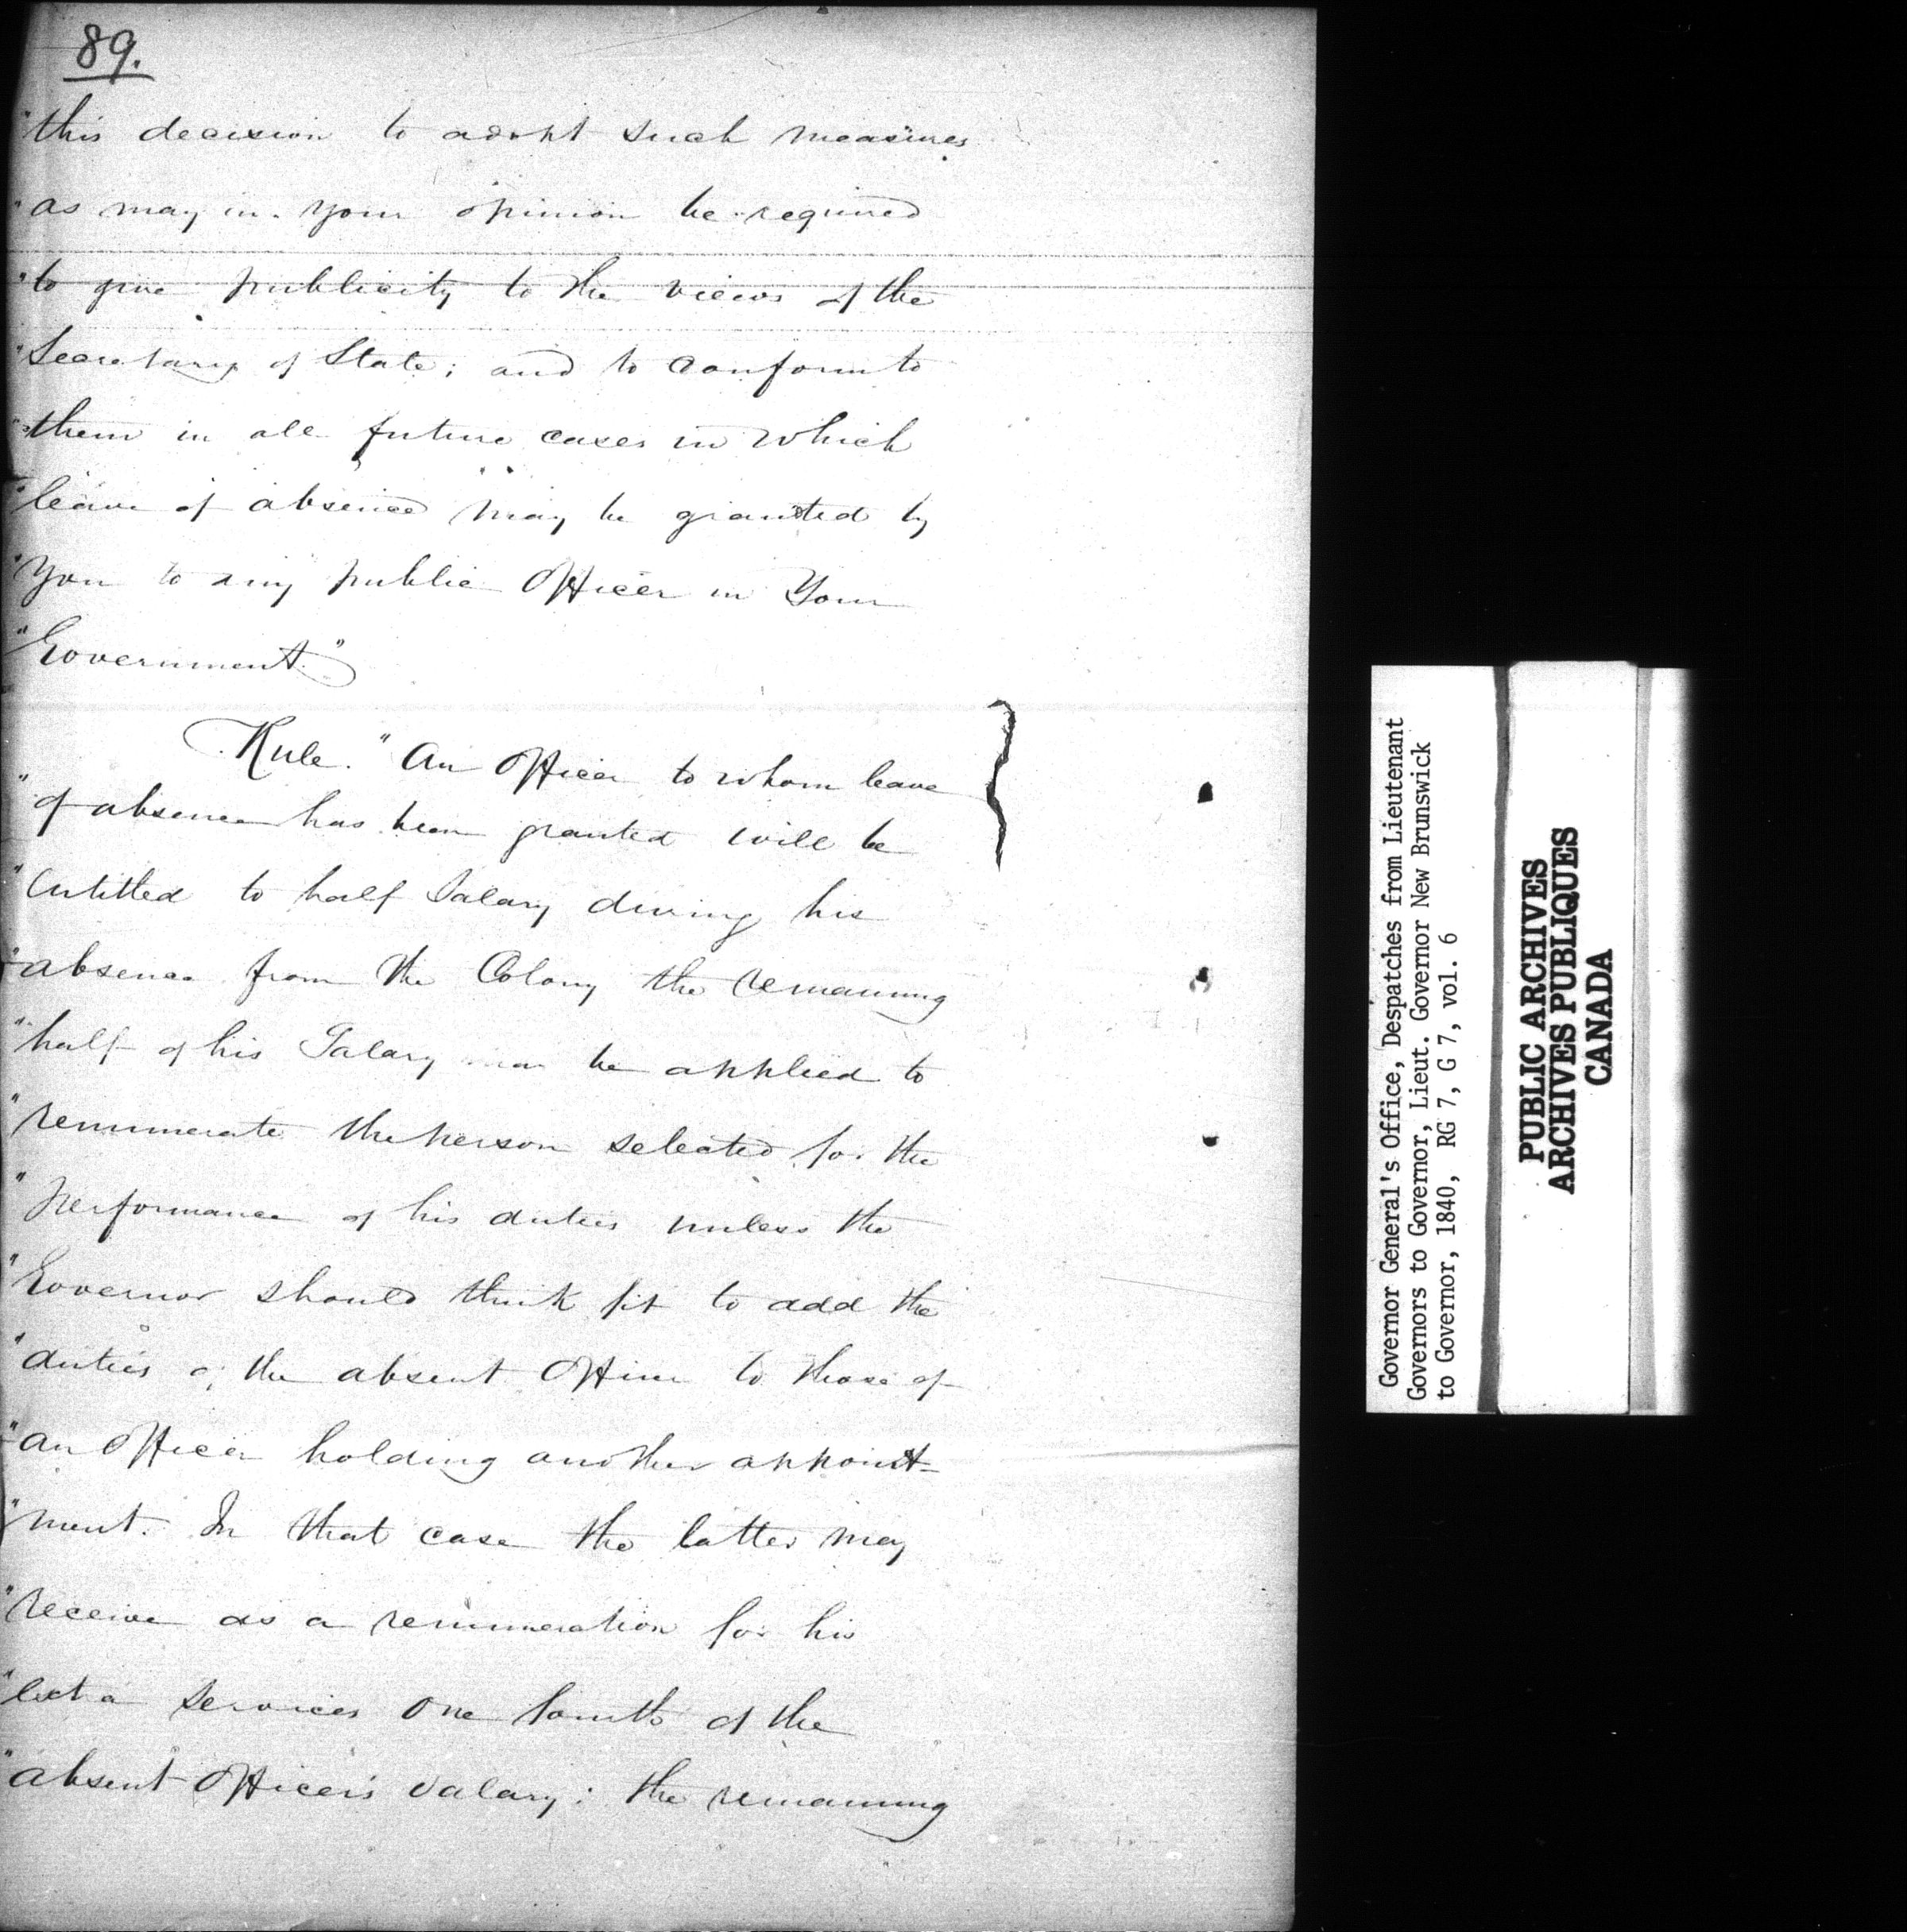 89.
"this decision to adopt such measures
"as may in your opinion be required
"to give publicity to the views of the
"Secretary of State; and to conform to
"them in all future cases in which
"leave of absence may be granted by
"You to any public Officer in Your
"Government."
Rule. "An Officer to whom leave
"of absence has been granted will be
"Entitled to half Salary during his
"absence from the Colony the remaining
"half of his Salary may be applied to
"remunerate the person selected for the
"performance of his duties unless the
"Governor should think fit to add the
"duties of the absent Officer to those of
"an Officer holding another appoint-
"ment. In that case the latter may
"receive as a remuneration for his
"extra services One fourth of the
"absent Officer's Salary: the remaining
Governor General's Office, Despatches from Lieutenant
Governors to Governor, Lieut. Governor New Brunswick
to Governor, 1840, RG 7, G 7, vol. 6
PUBLIC ARCHIVES
ARCHIVES PUBLIQUES
CANADA